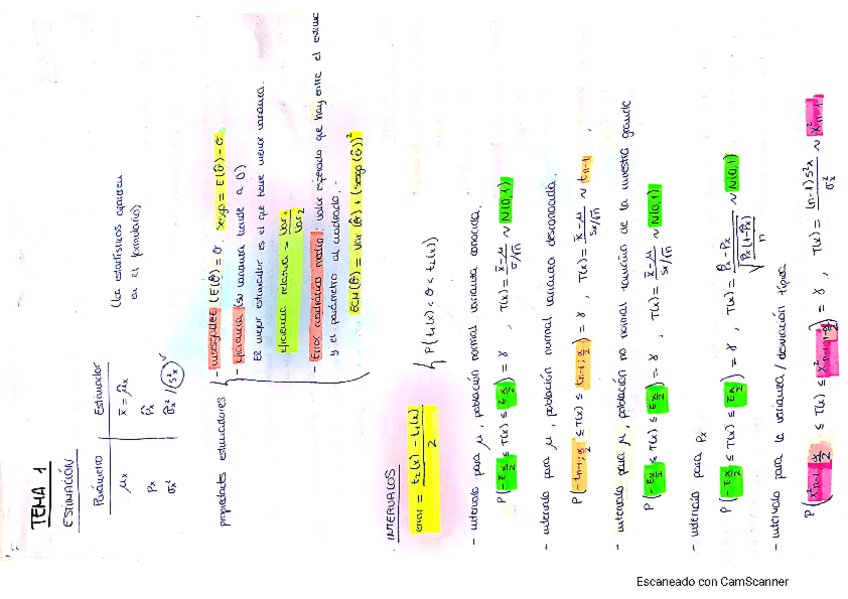 TEMA 1
ESTIMACIÓN
Parámetro | Estimador
μx | x̄ = μ̂x
Px | P̂x
σx² | σ̂x² / (S²x)
(los estadísticos aparecen en el formulario)
propiedades estimadores
- Insesgadez (E(θ̂) = θ, sesgo = E(θ̂) - θ.
- Eficiencia (su varianza tiende a 0)
El mejor estimador es el que tiene menor varianza.
eficiencia relativa = Var1 / Var2
- Error cuadrático medio: valor esperado que hay entre el
y el parámetro al cuadrado.
ECM(θ̂) = Var(θ̂) + (sesgo(θ̂))²
INTERVALOS { P(t1(x) < θ < t2(x))
error = t2(x) - t1(x) / 2
- intervalo para μ, población normal varianza conocida.
P(-Zα/2 ≤ T(x) ≤ Zα/2) = γ, T(x) = x̄ - μ / σ/√n ~ N(0,1)
- intervalo para μ, población normal varianza desconocida.
P(-tn-1; α/2 ≤ T(x) ≤ tn-1; α/2) = γ, T(x) = x̄ - μ / Sx/√n ~ tn-1
- intervalo para μ, población no normal tamaño de la muestra grande
P(-Zα/2 ≤ T(x) ≤ Zα/2) = γ, T(x) = x̄ - μ / Sx/√n ~ N(0,1)
- intervalo para Px
P(-Zα/2 ≤ T(x) ≤ Zα/2) = γ, T(x) = P̂x - Px / √(P̂x(1-P̂x)/n) ~ N(0,1)
- intervalo para la varianza / desviación típica
P(χ²n-1; α/2 ≤ T(x) ≤ χ²n-1; 1-α/2) = γ, T(x) = (n-1)S²x / σx² ~ χ²n-1
Escaneado con CamScanner